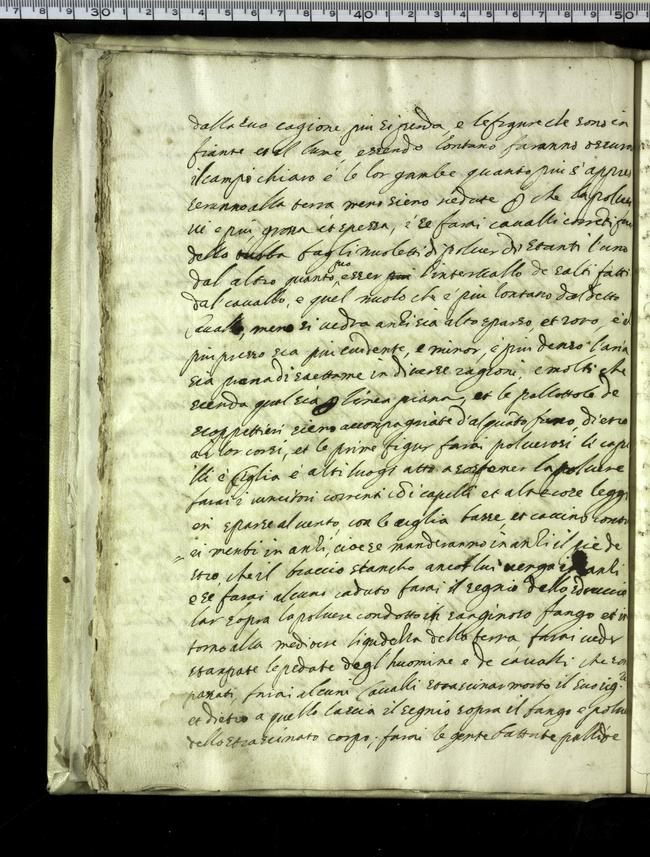 dalla sua cagione piu si perda, e le figure che sono in
frante et il lume, essendo lontano faranno oscuro
il campo chiaro é le lor gambe quanto piu s'appres
seranno alla terra meno sieno vedute che la polue
ui é piu grossa et spessa, é se farai caualli correnti fuor
della turba fa gli nuoletti di poluer distanti l'uno
dal altro quanto puo esser l'interuallo de salti fatti
dal cauallo, e quel nuolo che é piu lontano dal detto
Cauallo, meno si uedra anti sia alto sparso, et raro, é il
piu presso sia piu euidente, e minor, é piu denso l'aria
sia piena di saettame in diuerse ragioni, e molti che
scenda qual sia linea piana, et le pallottole de
scoppettieri sieno accompagniate d'alquanto fumo, dietro
ai lor corsi, et le prime figur farai poluerosi li cape
lli é ciglia é alti luogi atto a sostener la poluere
farai i uincitori correnti i capelli et alt e cose leggi
eri sparse al uento, con le ciglia basse, et caccino contra
ri menbri in anti, cioe se manderanno in anti il pie de
stro, che il braccio stancho anco lui uenga anti
e se farai alcuni caduto farai il segnio dello sdruccio
lar sopra la poluere condotto in sanginoso fango et in
torno alla mediocre liquidetta della terra farai ueder
stanpate le pedate degl huomine e de caualli che son
passati, farai alcuni Caualli strascinar morto il suo sig.re
et dietro a quello lascia il segnio sopra il fango e polue
dello strascinato corpo, farai le gente battute pallide